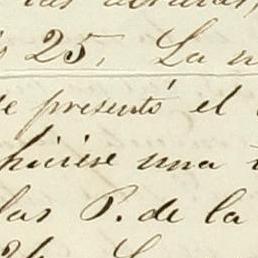 las
25. La
se presentó el
hiciese una
las P. de la